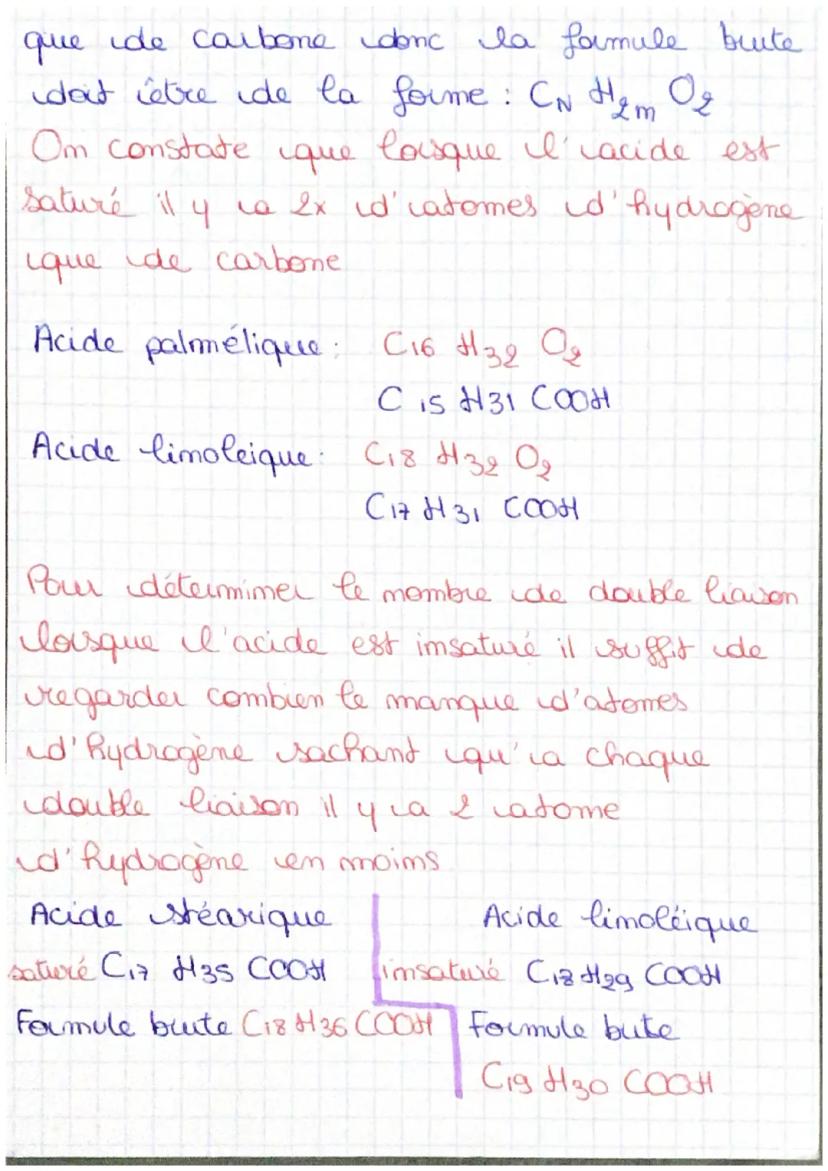 que de carbone donc la formule brute
doit être de la forme : CN H2m O2
On constate que lorsque l'acide est
saturé il y a 2x d'atomes d'hydrogène
que de carbone
Acide palmélique : C16 H32 O2
C15 H31 COOH
Acide linoleique : C18 H32 O2
C17 H31 COOH
Pour déterminer le nombre de double liaison
lorsque l'acide est insaturé il suffit de
regarder combien le manque d'atomes
d'hydrogène sachant qu'a chaque
double liaison il y a 2 atome
d'hydrogène en moins
Acide stéarique
saturé C17 H35 COOH
Formule brute C18 H36 COOH
Acide linoléique
insaturé C18 H29 COOH
Formule bute
C19 H30 COOH